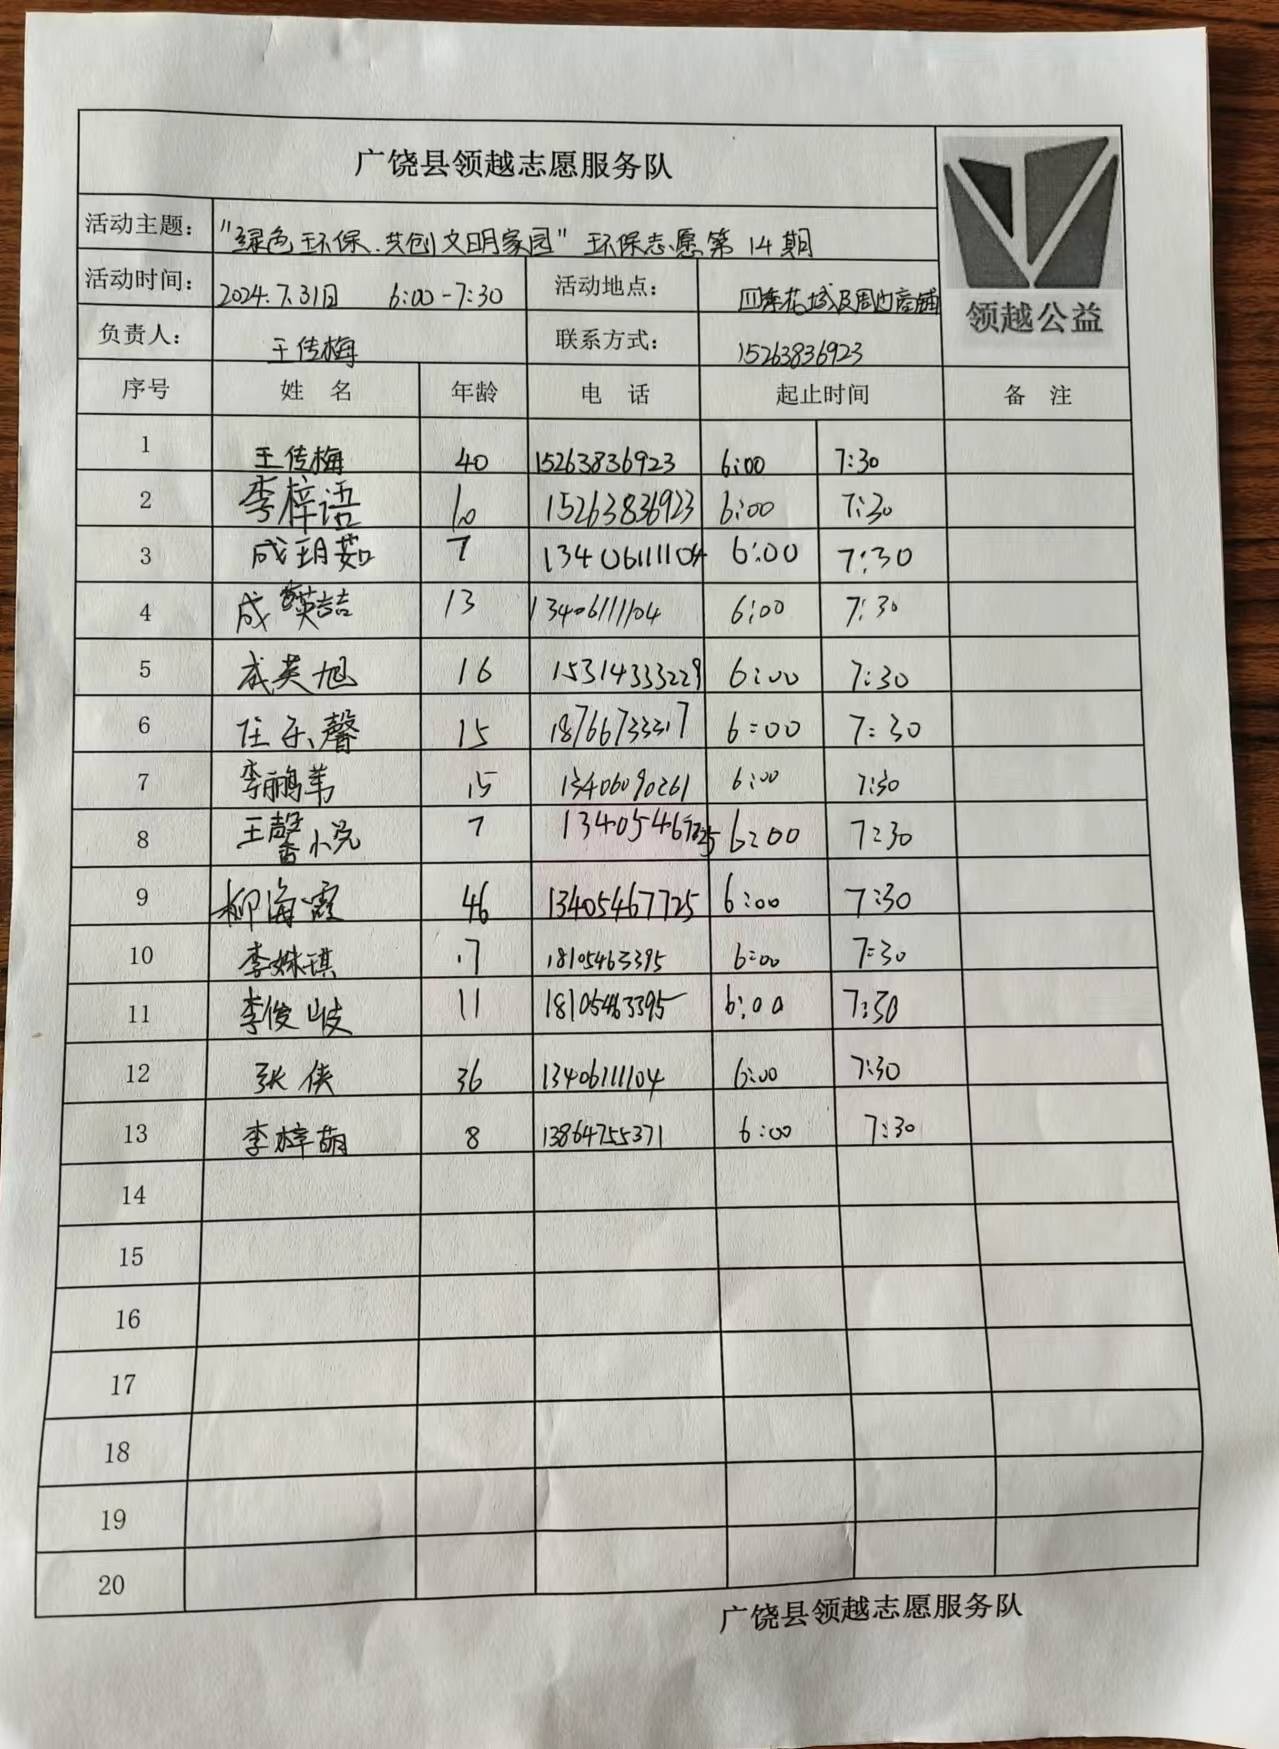 广饶县领越志愿服务队
活动主题： "绿色环保.共创文明家园" 环保志愿第14期
领越公益
活动时间： 2024.7.31日 6:00-7:30 活动地点： 四季花城及周边商铺
负责人： 王传梅 联系方式： 15263836923
序号 姓 名 年龄 电 话 起止时间 备 注
1 王传梅 40 15263836923 6:00 7:30
2 李梓语 10 15263836923 6:00 7:30
3 成玥茹 7 13406111104 6:00 7:30
4 成英喆 13 13406111104 6:00 7:30
5 成英旭 16 15314333229 6:00 7:30
6 任乐馨 15 18766733317 6:00 7:30
7 李鹏苇 15 13406090261 6:00 7:30
8 王馨悦 7 13405467725 6:00 7:30
9 柳海霞 46 13405467725 6:00 7:30
10 李姝琪 17 18105463395 6:00 7:30
11 李俊岐 11 18105463395 6:00 7:30
12 张侠 36 13406111104 6:00 7:30
13 李梓萌 8 13864755371 6:00 7:30
14
15
16
17
18
19
20
广饶县领越志愿服务队